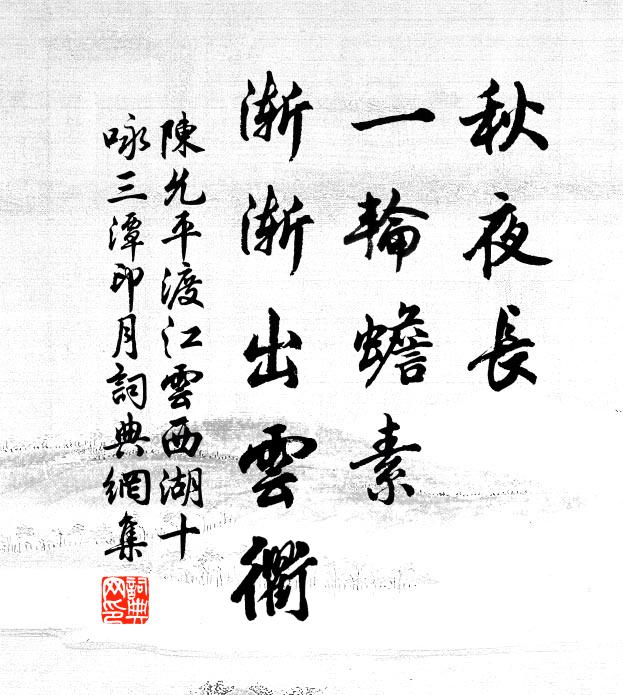 秋夜長
一輪蟾素
漸漸出雲衢
陳允平渡江雲西湖十
咏三潭印月詞典網集
詞典
网印